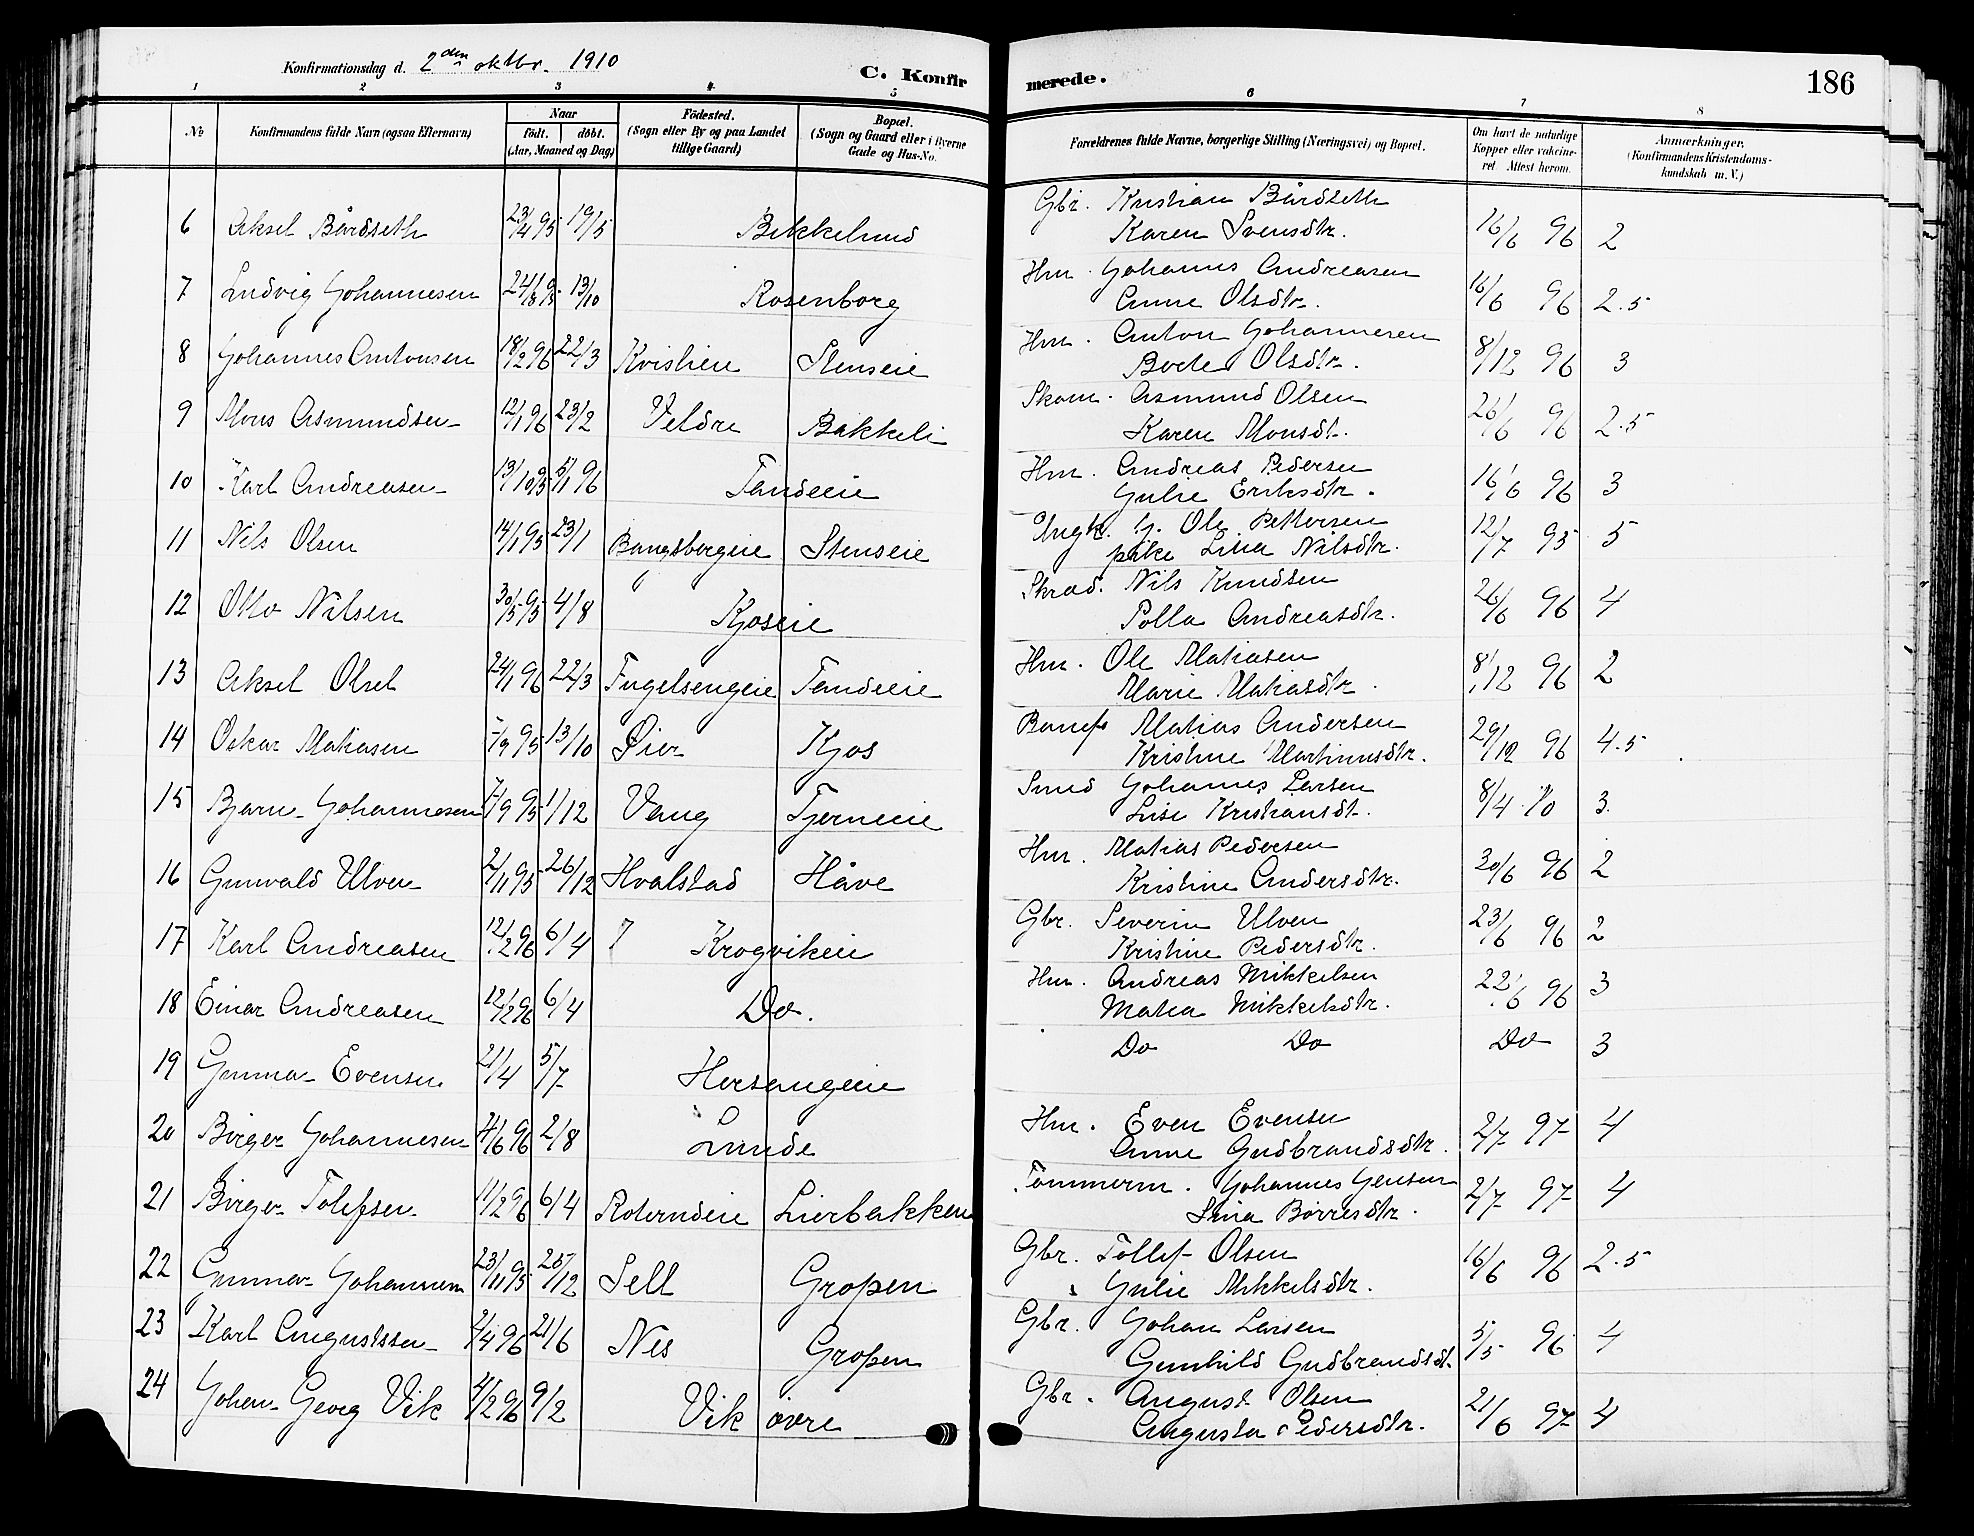 Konfirmationsdag d. 2den oktbr. 1910 C. Konfirmerede. 186
1 2 3 4 5 6 7 8
№ Konfirmandens fulde Navn (ogsaa Efternavn) Naar födt. döbt. (Aar, Maaned og Dag) Födested. (Sogn eller By og paa Landet tillige Gaard) Bopæl. (Sogn og Gaard eller i Byerne Gade og Hus-No. Forældrenes fulde Navne, borgerlige Stilling (Næringsvei) og Bopæl. Om havt de naturlige Kopper eller vakcineret Attest herom. Anmærkninger. (Konfirmandens Kristendomskundskab m. V.)
6 Aksel Bårdseth 23/4 95 19/5 Bekkelund Gbr. Kristian Bårdseth
Karen Svensdtr. 16/6 96 2
7 Ludvig Johannesen 24/8 95 13/10 Rosenborg Hm. Johannes Andreasen
Anne Olsdtr. 16/6 96 2.5
8 Johannes Antonsen 18/2 96 22/3 Kvislieie Stenseie Hm. Anton Johannesen
Olsdtr. 8/12 96 3
9 Mons Asmundsen 12/1 96 23/2 Veldre Bakkeli Skom. Asmund Olsen
Karen Monsdt. 26/6 96 2.5
10 Karl Andreasen 13/10 95 5/1 96 Tandeeie Hm. Andreas Pedersen
Julie Eriksdtr. 16/6 96 3
11 Nils Olsen 14/1 95 23/1 Bangsbergeie Stenseie Ungk. Ole Pettersen
pike Lina Nilsdtr. 12/7 95 5
12 Otto Nilsen 30/5 95 4/8 Kjoseie Skræd. Nils Knudsen
Polla Andreasdtr. 26/6 96 4
13 Aksel Olsel 24/1 96 22/3 Fugelsengeie Tandeeie Hm. Ole Matiasen
Marie Matiasdtr. 8/12 96 2
14 Oskar Matiasen 7/9 95 13/10 Øier Kjos Banef. Matias Andersen
Kristine Martinusdtr. 29/12 96 4.5
15 Bjarne Johannesen 7/9 95 1/12 Vang Tjerneie Smed Johannes Larsen
Lise Kristiansdt. 8/4 10 3.
16 Gunvald Ulven 2/11 95 26/12 Hvalstad Håve Hm. Matias Pedersen
Kristine Andersdtr. 30/6 96 2
17 Karl Andreasen 12/2 96 6/4 Krogvikeie Gbr. Severin Ulven
Kristine Pedersdtr. 23/6 96 2
18 Einar Andreasen 12/2 96 6/4 Do. Hm. Andreas Mikkelsen
Matia Mikkelsdtr. 22/6 96 3
19 Gunnar Evensen 21/4 5/7 Hersaugeie Do Do Do 3
20 Birger Johannesen 4/6 96 2/8 Lunde Hm. Even Evensen
Anne Gudbrandsdtr. 2/7 97 4
21 Birger Tolefsen 11/2 96 6/4 Roterudeie Lierbakken Tømmerm. Johannes Jensen
Lina Børresdtr. 2/7 97 4
22 Gunnar Johannesen 23/11 95 25/12 Sell Gropen Gbr. Tollef Olsen
Julie Mikkelsdtr. 16/6 96 2.5
23 Karl Augustssen 2/4 96 21/6 Nes Gropen Gbr. Johan Larsen
Gunhild Gudbrandsdt. 5/5 96 4
24 Johan Georg Vik 4/2 96 9/2 Vik øvre Gbr. August Olsen
Augusta Pedersdtr. 21/6 97 4